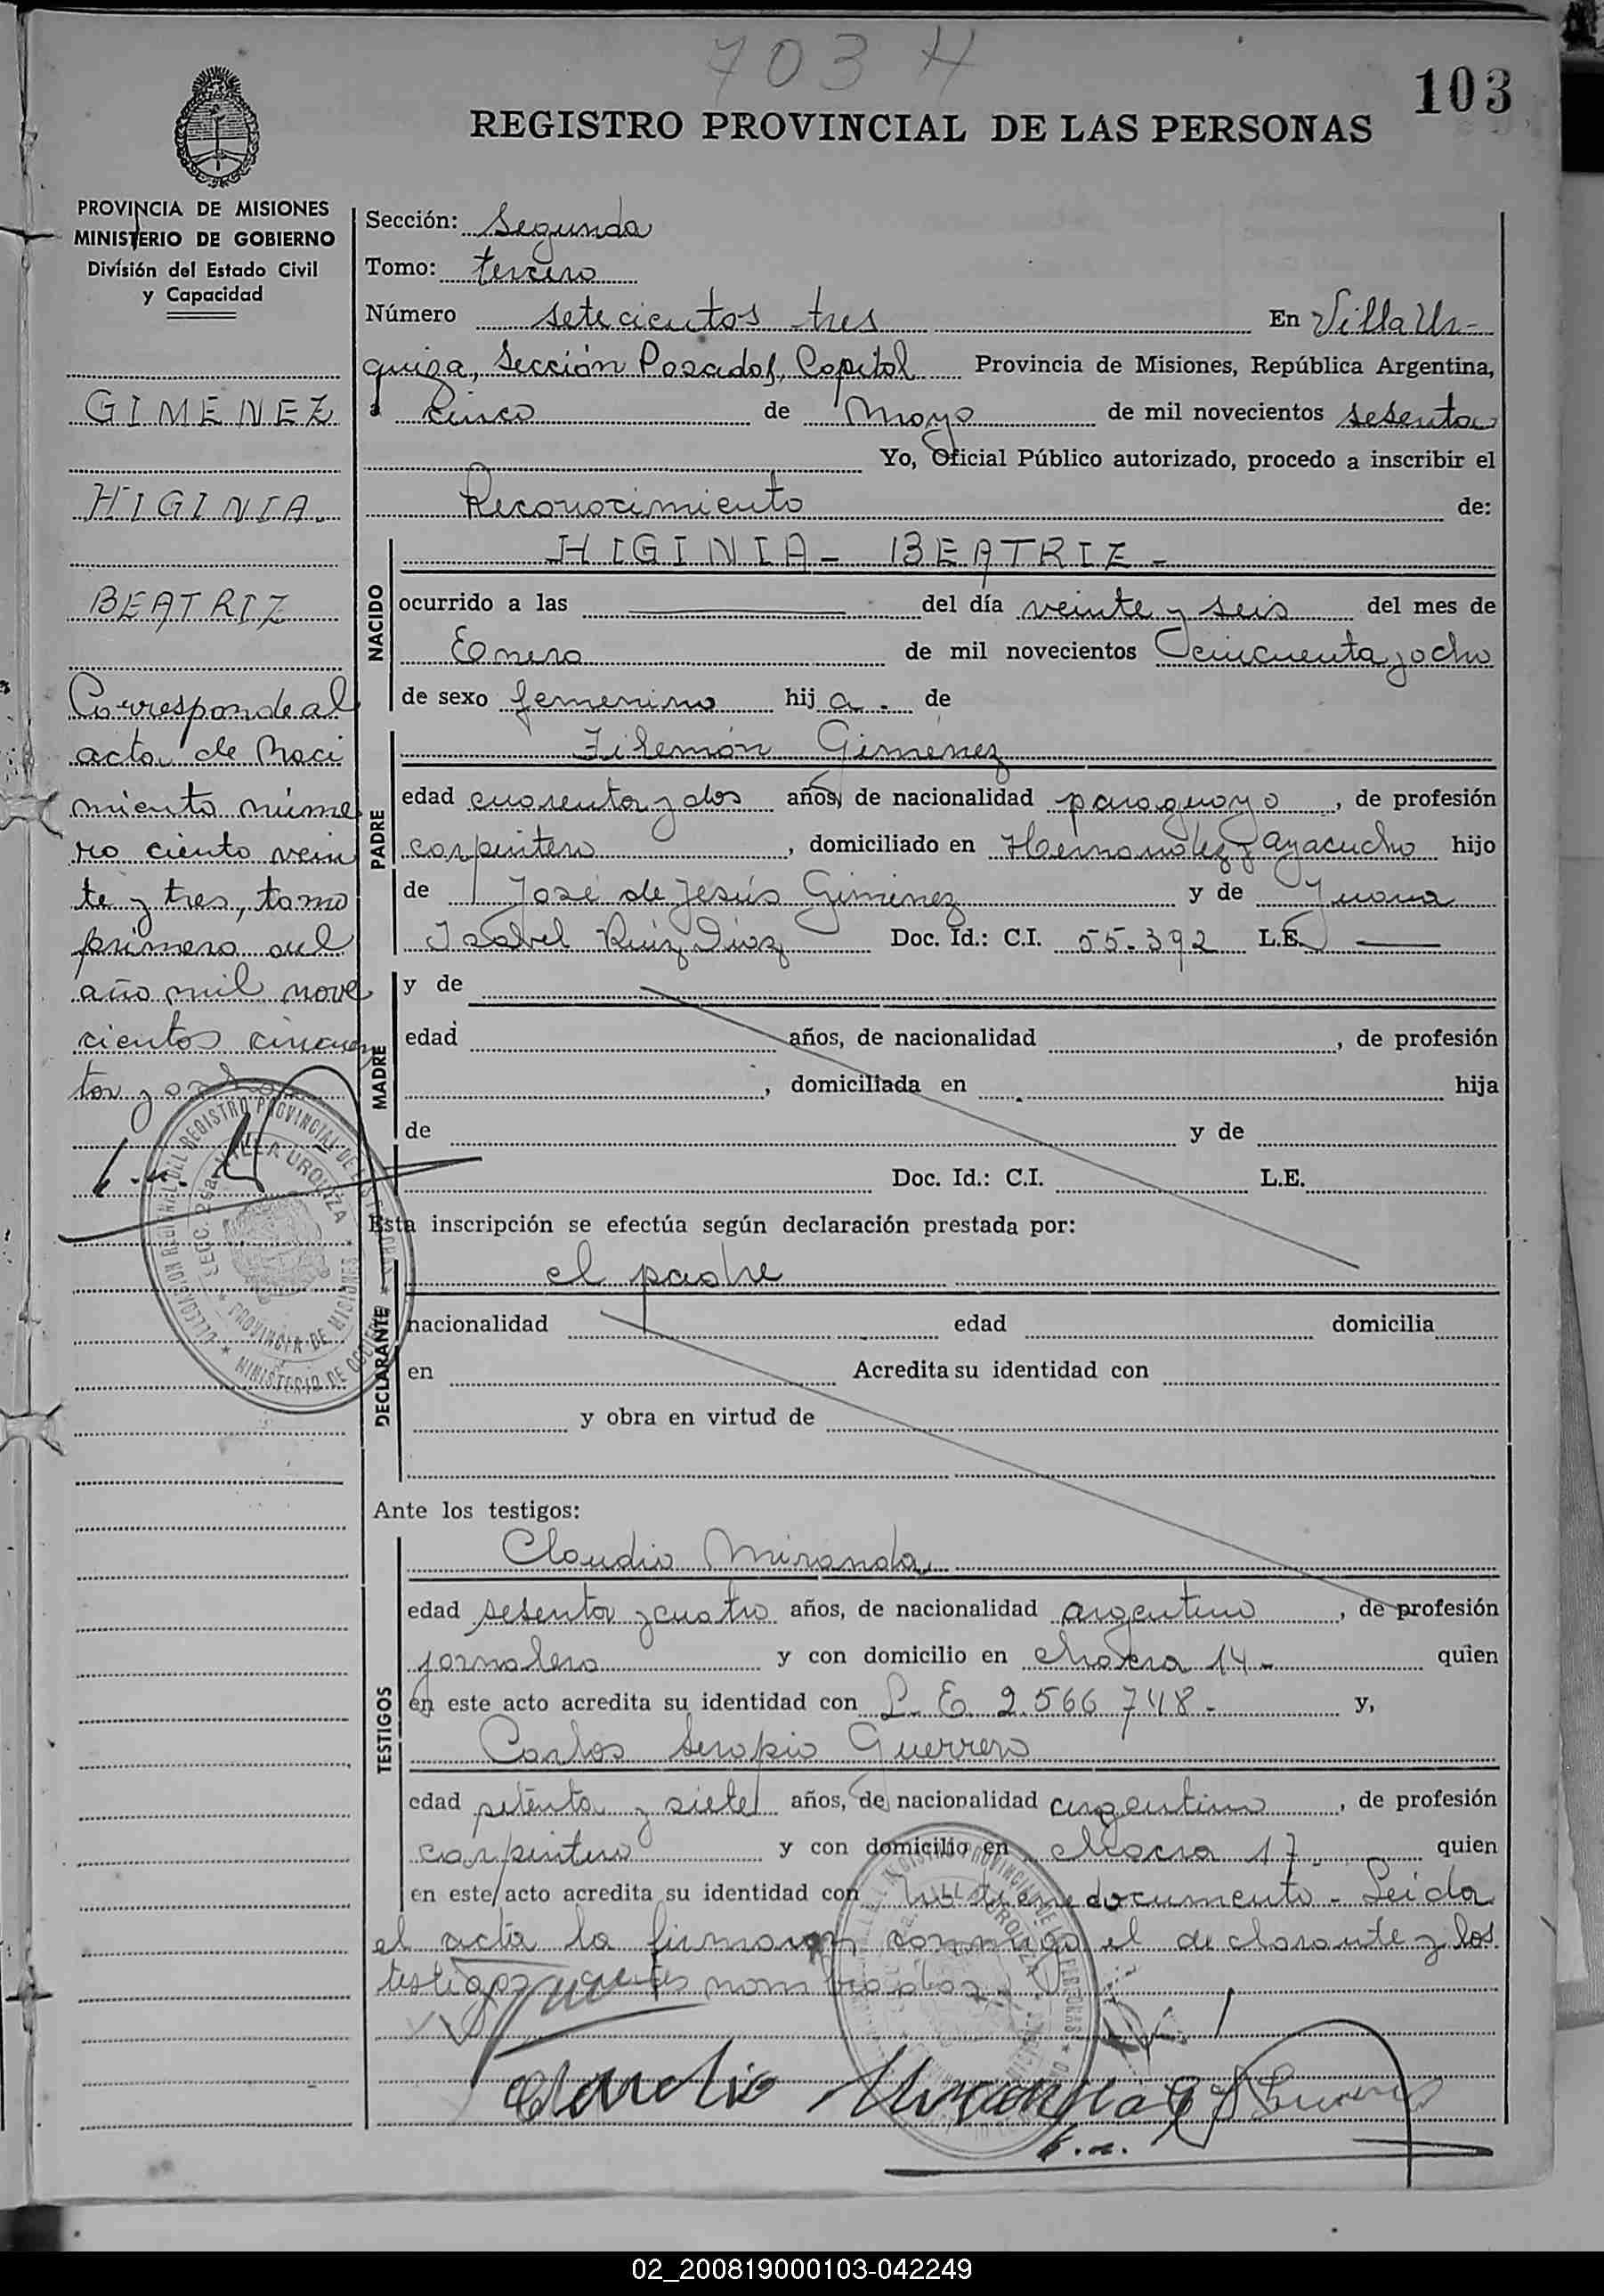 703 H
103
REGISTRO PROVINCIAL DE LAS PERSONAS
PROVINCIA DE MISIONES
MINISTERIO DE GOBIERNO
División del Estado Civil
y Capacidad
GIMENEZ
HIGINIA.
BEATRIZ
Corresponde al
acta de Naci
miento núme
ro ciento vein
te y tres, tomo
primero del
año mil nove
cientos cincuen
ta y ocho
Sección: Segunda
Tomo: tercero
Número setecientos tres En Villa Ur-
quiza, Sección Posadas, Capital Provincia de Misiones, República Argentina,
a cinco de Mayo de mil novecientos sesenta
Yo, Oficial Público autorizado, procedo a inscribir el
Reconocimiento de:
NACIDO
HIGINIA - BEATRIZ -
ocurrido a las del día veinte y seis del mes de
Enero de mil novecientos cincuenta y ocho
de sexo femenino hij a. de
PADRE
Filemón Gimenez
edad cuarenta y dos años, de nacionalidad paraguayo, de profesión
carpintero, domiciliado en Hernandez y Ayacucho hijo
de José de Jesús Gimenez y de Juana
Isabel Ruiz Diaz Doc. Id.: C.I. 55-392 L.E.
MADRE
y de
edad años, de nacionalidad , de profesión
, domiciliada en hija
de y de
Doc. Id.: C.I. L.E.
Esta inscripción se efectúa según declaración prestada por:
DECLARANTE
el padre
nacionalidad edad domicilia
en Acredita su identidad con
y obra en virtud de
Ante los testigos:
TESTIGOS
Claudio Miranda
edad sesenta y cuatro años, de nacionalidad argentino, de profesión
jornalero y con domicilio en chacra 14- quien
en este acto acredita su identidad con L. E. 2.566.748- y,
Carlos Serapio Guerrero
edad setenta y siete años, de nacionalidad argentino, de profesión
carpintero y con domicilio en chacra 17 quien
en este acto acredita su identidad con no tiene documento - Leida
el acta la firmaron conmigo el declarante y los
testigos antes nombrados.
Claudio Miranda
REGISTRO PROVINCIAL DE LAS PERSONAS
SECC. 2da. VILLA URQUIZA
PROVINCIA DE MISIONES
MINISTERIO DE GOBIERNO
02_200819000103-042249